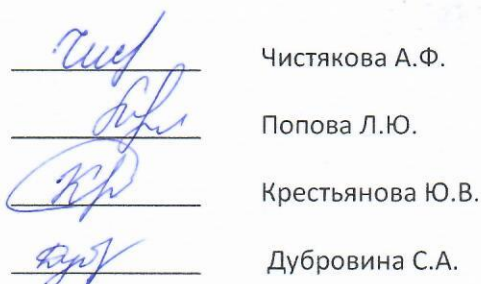 Чистякова А.Ф.
Попова Л.Ю.
Крестьянова Ю.В.
Дубровина С.А.